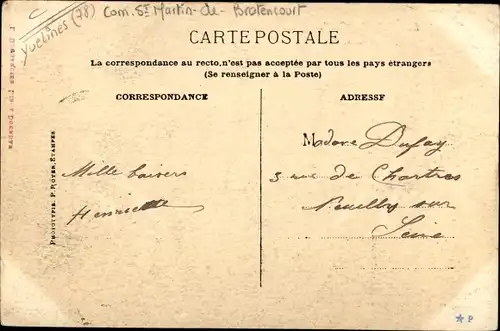 Yvelines (78) Com. St Martin-de-Bretencourt
CARTE POSTALE
La correspondance au recto, n'est pas acceptée par tous les pays étrangers
(Se renseigner à la Poste)
CORRESPONDANCE
ADRESSE
Mille baisers
Henriette
Madame Dufay
3 rue de Chartres
Neuilly sur
Seine
PHOTOTYPIE P. ROYER, ÉTAMPES
★ P